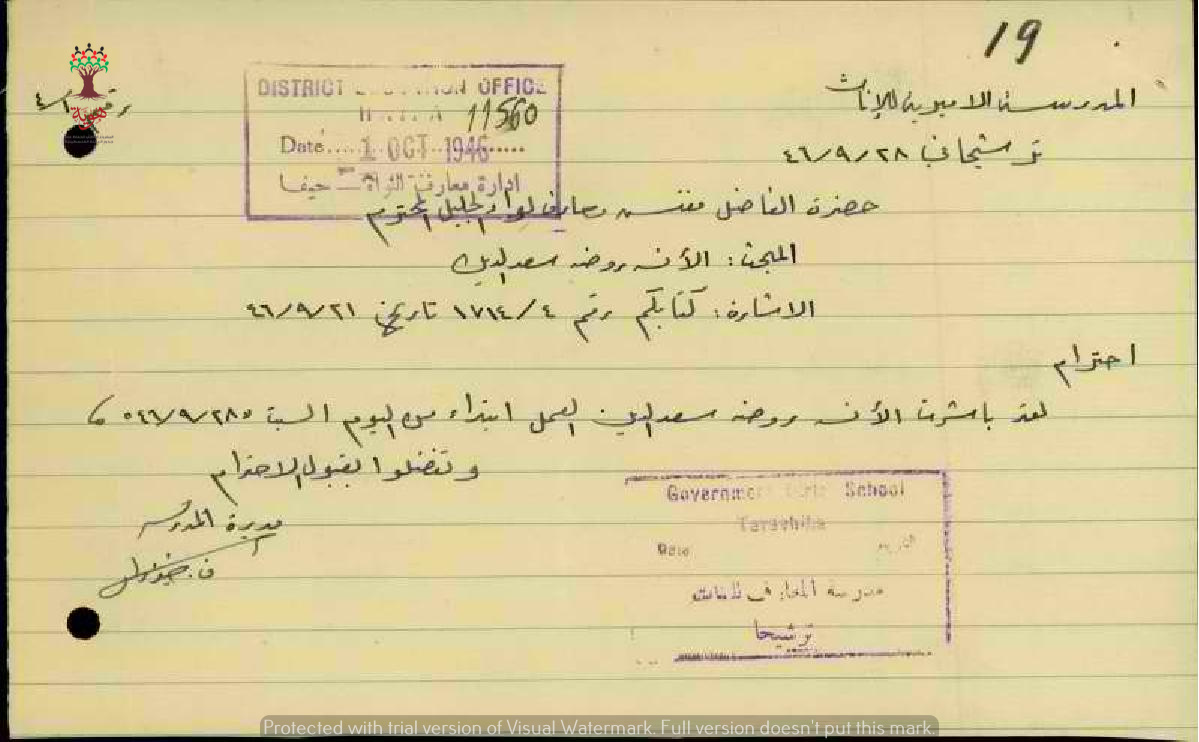 19
المدرسة الاميرية للإناث
ترشيحا في ٤٦/٩/٢٨
DISTRICT OFFICE
11560
Date..... 1 OCT 1946
ادارة معارف اللواء حيفا
حضرة الفاضل مفتش معارف لواء الجليل المحترم
المبحث: الآنسه روضه سعد الدين
الاشارة: كتابكم رقم ١٧١٤/٤ تاريخ ٤٦/٩/٢١
احترام
لقد باشرت الآنسه روضه سعد الدين العمل ابتداء من اليوم السبت ٤٦/٩/٢٨
وتفضلوا بقبول الاحترام
مديرة المدرسه
ف.
Government Girls School
Tarshiha
Date
التاريخ
مدرسة المعارف للبنات
ترشيحا
Protected with trial version of Visual Watermark. Full version doesn't put this mark.